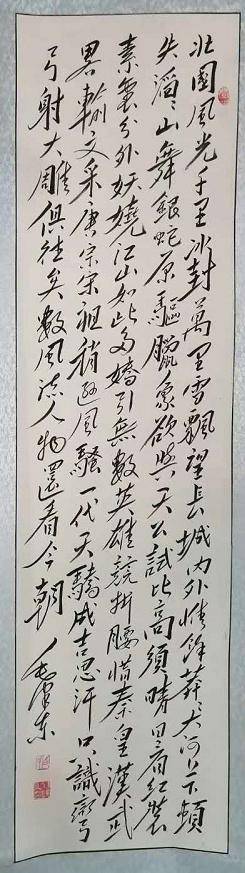 北國風光千里冰封萬里雪飄望長城内外惟餘莽〻大河上下頓
失滔〻山舞銀蛇原驅臘象欲與天公試比高須晴日看紅裝
素裹分外妖嬈江山如此多嬌引無數英雄競折腰惜秦皇漢武
畧輸文采唐宗宋祖稍遜風騷一代天驕成吉思汗只識彎
弓射大雕俱往矣數風流人物還看今朝 毛澤東